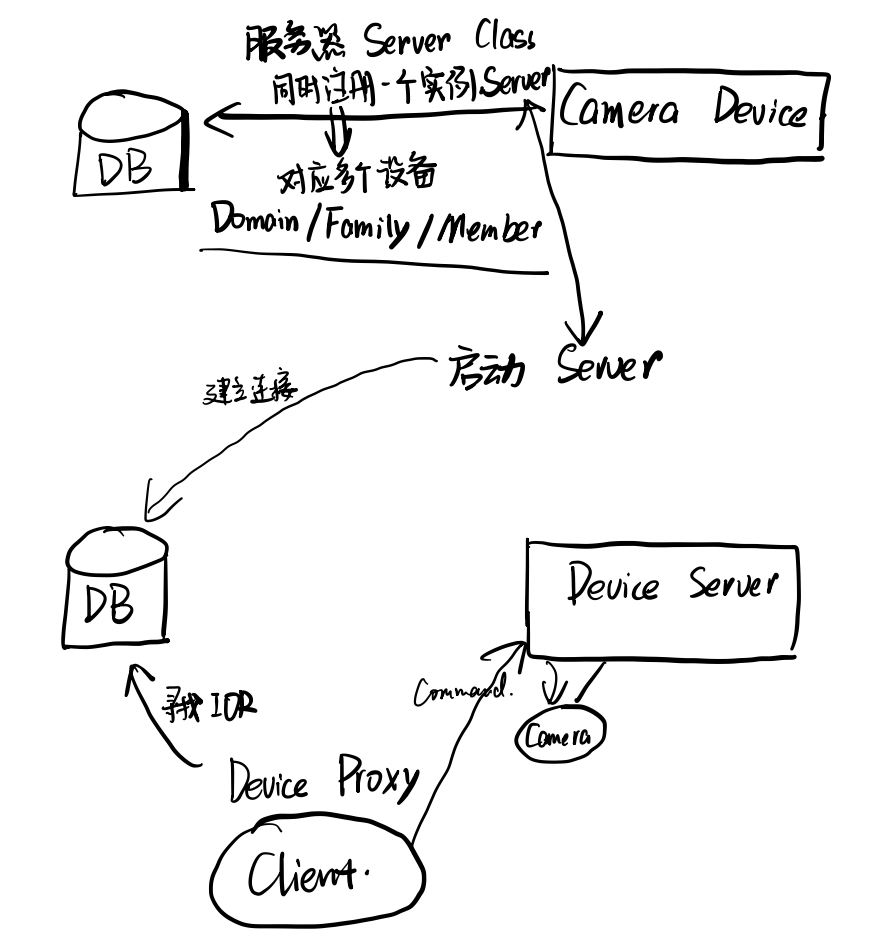 服务器 Server Class
同时注册一个实例Server
Camera Device
DB
对应多个设备
Domain/Family/Member
启动 Server
建立连接
DB
Device Server
寻找IOR
Command.
Camera
Device Proxy
Client.